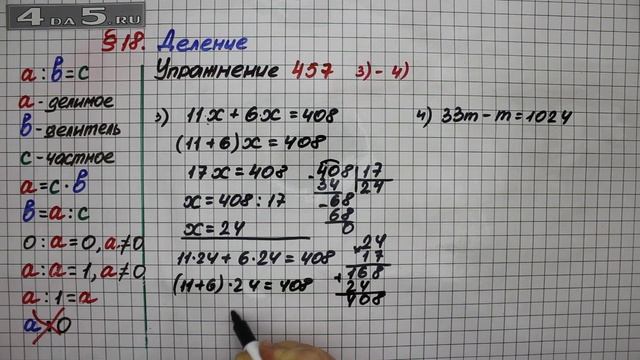 4 DA 5.RU
§18. Деление
Упражнение 457 3)-4)
a : в = c
a - делимое
в - делитель
c - частное
a = c · в
в = a : c
0 : a = 0, a ≠ 0
a : a = 1, a ≠ 0
a : 1 = a
a : 0
3) 11x + 6x = 408
(11 + 6)x = 408
17x = 408
x = 408 : 17
x = 24
11·24 + 6·24 = 408
(11+6)·24 = 408
408 | 17
34 | 24
- 68
68
0
24
× 17
+ 168
24
408
4) 33m - m = 1024